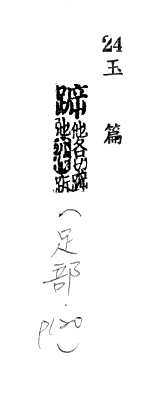 24 玉篇
他各切
(足部·P120)